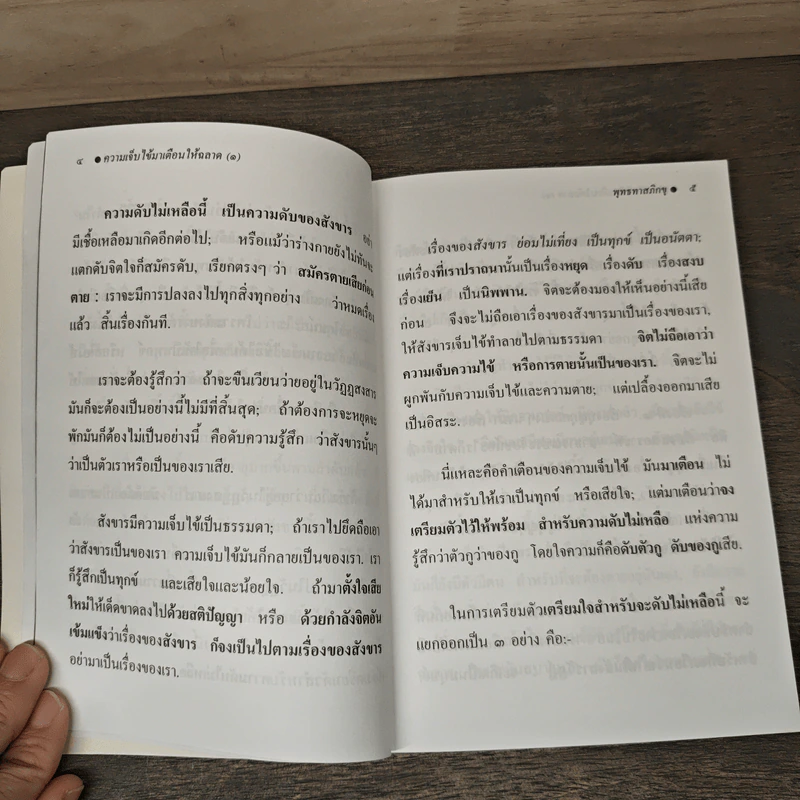 ๔ ● ความเจ็บไข้มาเตือนให้ฉลาด (๑)
ความดับไม่เหลือนี้ เป็นความดับของสังขาร อย่า
มีเชื้อเหลือมาเกิดอีกต่อไป; หรือแม้ว่าร่างกายยังไม่ทันจะ
แตกดับจิตใจก็สมัครดับ, เรียกตรงๆ ว่า สมัครตายเสียก่อน
ตาย : เราจะมีการปลงลงไปทุกสิ่งทุกอย่าง ว่าหมดเรื่อง
แล้ว สิ้นเรื่องกันที.
เราจะต้องรู้สึกว่า ถ้าจะขืนเวียนว่ายอยู่ในวัฏฏสงสาร
มันก็จะต้องเป็นอย่างนี้ไม่มีที่สิ้นสุด; ถ้าต้องการจะหยุดจะ
พักมันก็ต้องไม่เป็นอย่างนี้ คือดับความรู้สึก ว่าสังขารนั้นๆ
ว่าเป็นตัวเราหรือเป็นของเราเสีย.
สังขารมีความเจ็บไข้เป็นธรรมดา; ถ้าเราไปยึดถือเอา
ว่าสังขารเป็นของเรา ความเจ็บไข้มันก็กลายเป็นของเรา. เรา
ก็รู้สึกเป็นทุกข์ และเสียใจและน้อยใจ. ถ้ามาตั้งใจเสีย
ใหม่ให้เด็ดขาดลงไปด้วยสติปัญญา หรือ ด้วยกำลังจิตอัน
เข้มแข็งว่าเรื่องของสังขาร ก็จงเป็นไปตามเรื่องของสังขาร
อย่ามาเป็นเรื่องของเรา.
พุทธทาสภิกขุ ● ๕
เรื่องของสังขาร ย่อมไม่เที่ยง เป็นทุกข์ เป็นอนัตตา;
แต่เรื่องที่เราปรารถนานั้นเป็นเรื่องหยุด เรื่องดับ เรื่องสงบ
เรื่องเย็น เป็นนิพพาน. จิตจะต้องมองให้เห็นอย่างนี้เสีย
ก่อน จึงจะไม่ถือเอาเรื่องของสังขารมาเป็นเรื่องของเรา,
ให้สังขารเจ็บไข้ทำลายไปตามธรรมดา จิตไม่ถือเอาว่า
ความเจ็บความไข้ หรือการตายนั้นเป็นของเรา. จิตจะไม่
ผูกพันกับความเจ็บไข้และความตาย; แต่เปลื้องออกมาเสีย
เป็นอิสระ.
นี่แหละคือคำเตือนของความเจ็บไข้ มันมาเตือน ไม่
ได้มาสำหรับให้เราเป็นทุกข์ หรือเสียใจ; แต่มาเตือนว่าจง
เตรียมตัวไว้ให้พร้อม สำหรับความดับไม่เหลือ แห่งความ
รู้สึกว่าตัวกูว่าของกู โดยใจความก็คือดับตัวกู ดับของกูเสีย.
ในการเตรียมตัวเตรียมใจสำหรับจะดับไม่เหลือนี้ จะ
แยกออกเป็น ๓ อย่าง คือ:-